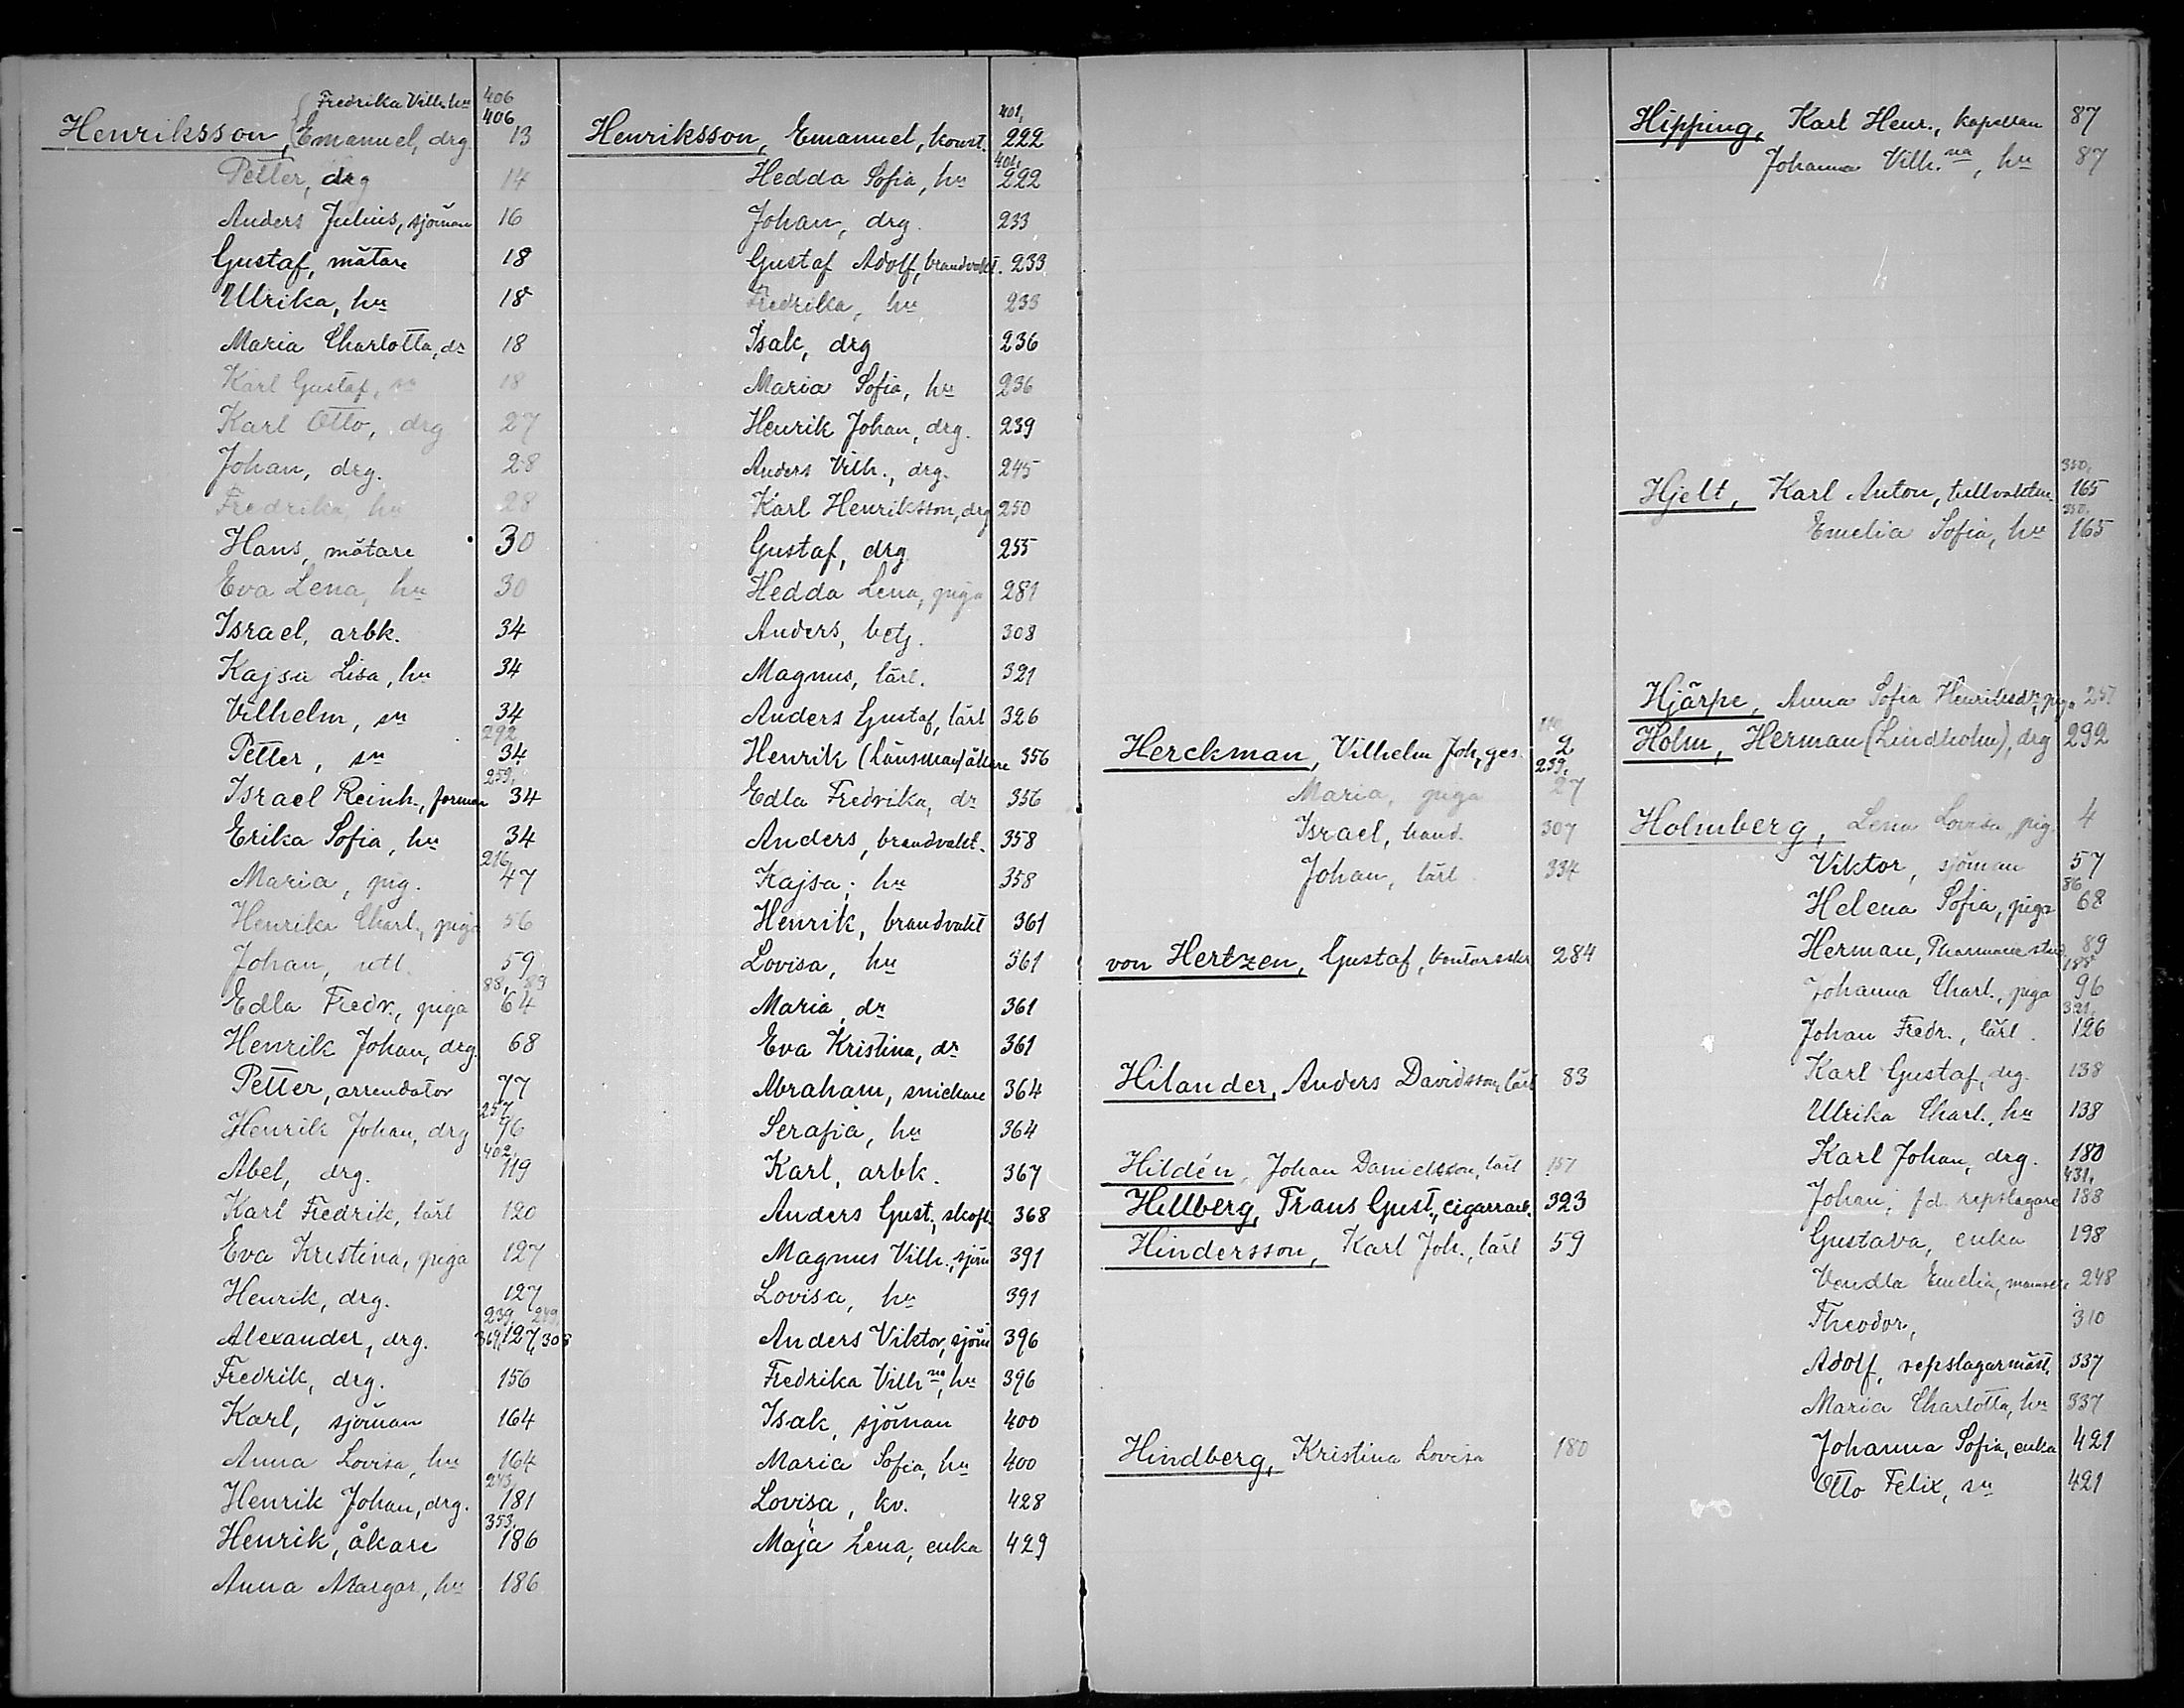 Fredrika Vilh. hu 406
406
Henriksson, Emanuel, drg. 13
Petter, drg 14
Anders Julius, sjöman 16
Gustaf, mätare 18
Ulrika, hu 18
Maria Charlotta, dr 18
Karl Gustaf, sn 18
Karl Otto, drg 27
Johan, drg. 28
Fredrika, hu 28
Hans, mätare 30
Eva Lena, hu 30
Israel, arbk. 34
Kajsa Lisa, hu 34
Vilhelm, sn 34
292
Petter, sn 34
259,
Israel Reinh., forman 34
Erika Sofia, hu 34
216,
Maria, pig. 47
Henrika Charl., piga 56
Johan, 59
88, 89
Edla Fredr., piga 64
Henrik Johan, drg. 68
Petter, arrendator 77
257,
Henrik Johan, drg 96
402,
Abel, drg. 119
Karl Fredrik, lärl 120
Eva Kristina, piga 127
Henrik, drg. 127
239, 249,
Alexander, drg. 369, 127, 308
Fredrik, drg. 156
Karl, sjöman 164
Anna Lovisa, hu 164
243,
Henrik Johan, drg. 181
353,
Henrik, åkare 186
Anna Margar., hu 186
401,
Henriksson, Emanuel, konst. 222
401,
Hedda Sofia, hu 222
Johan, drg. 233
Gustaf Adolf, brandvakt. 233
Fredrika, hu 233
Isak, drg 236
Maria Sofia, hu 236
Henrik Johan, drg. 239
Anders Vilh., drg. 245
Karl Henriksson, drg 250
Gustaf, drg 255
Hedda Lena, piga 281
Anders, betj. 308
Magnus, lärl. 321
Anders Gustaf, lärl 326
Henrik (Länsman) åkare 356
Edla Fredrika, dr 356
Anders, brandvakt. 358
Kajsa, hu 358
Henrik, brandvakt 361
Lovisa, hu 361
Maria, dr 361
Eva Kristina, dr 361
Abraham, snickare 364
Serafia, hu 364
Karl, arbk. 367
Anders Gust., skofl. 368
Magnus Vilh., sjöm 391
Lovisa, hu 391
Anders Viktor, sjöm 396
Fredrika Vilh.na, hu 396
Isak, sjöman 400
Maria Sofia, hu 400
Lovisa, kv. 428
Maja Lena, enka 429
Herckman, Vilhelm Joh, ges. 2
239,
Maria, piga 27
Israel, hand. 307
Johan, lärl. 334
von Hertzen, Gustaf, kontorsskr 284
Hilander, Anders Davidsson, lärl 83
Hildén, Johan Danielsson, lärl 157
Hillberg, Frans Gust., cigarrarb. 323
Hindersson, Karl Joh., lärl 59
Hindberg, Kristina Lovisa 180
Hipping, Karl Henr., kapellan 87
Johanna Vilh.na, hu 87
350,
Hjelt, Karl Anton, tullvaktm. 165
350,
Emelia Sofia, hu 165
Hjärpe, Anna Sofia Henriksdr, piga 257
Holm, Herman (Lindholm), drg 292
Holmberg, Lena Lovisa, pig. 4
Viktor, sjöman 57
86
Helena Sofia, piga 68
Herman, Pharmacie stud. 89
185
Johanna Charl., piga 96
321,
Johan Fredr., lärl. 126
Karl Gustaf, drg. 138
Ulrika Charl., hu 138
Karl Johan, drg. 180
431,
Johan, fd. repslagare 188
Gustava, enka 198
Vendla Emelia, mamsell 248
Theodor, 310
Adolf, repslagarmäst. 337
Maria Charlotta, hu 337
Johanna Sofia, enka 421
Otto Felix, sn 421